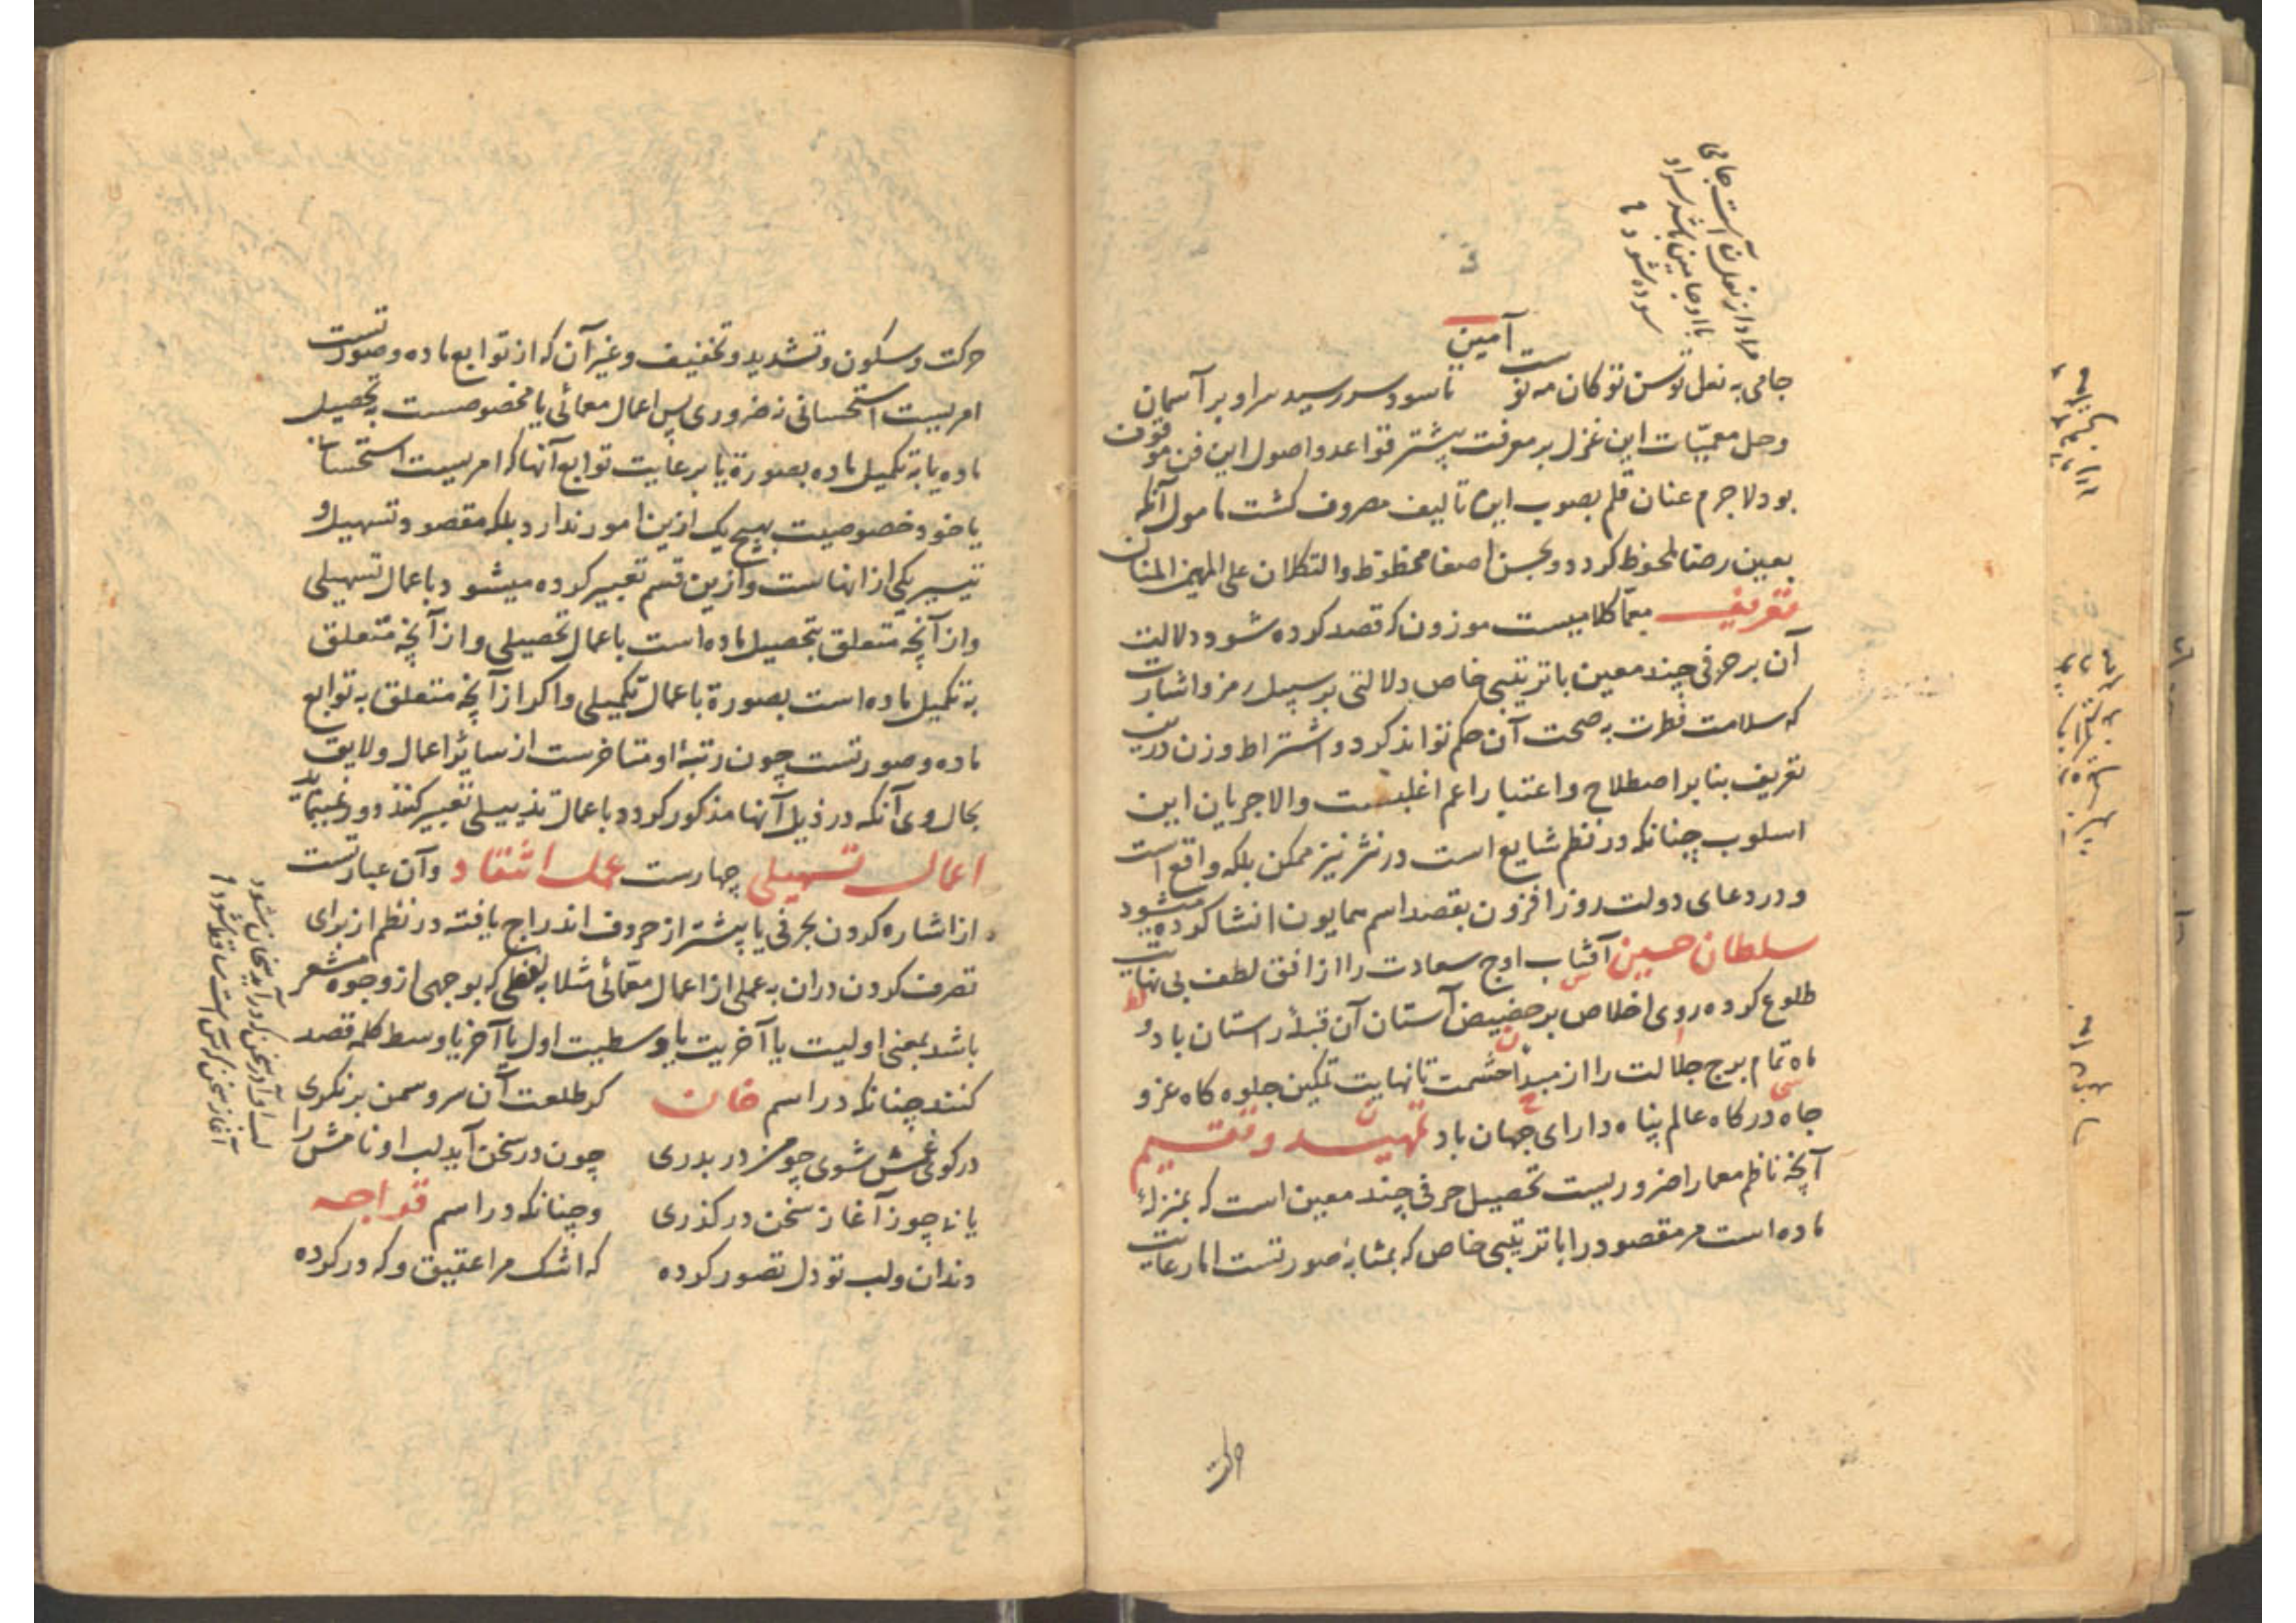 آمین
جامی به نعل توسن تو کان مه نوست تا سود سر رسید سر او بر آسمان
وحل معمیّات این غزل بر معرفت پیشتر قواعد و اصول این فن موقوف
بود لاجرم عنان قلم بصوب این تالیف مصروف کشت مامول آنکه
بعین رضا ملحوظ کردد و بحسن اصغا محظوظ والتکلان علی المهیمن المنان
تعریف معمّا کلامیست موزون که قصد کرده شود دلالت
آن بر حرفی چند معین با ترتیبی خاص دلالتی بر سبیل رمز و اشارت
که سلامت فطرت به صحت آن حکم تواند کرد و اشتراط وزن درین
تعریف بنا بر اصطلاح و اعتبار اعم اغلبست والا جریان این
اسلوب چنانکه در نظم شایع است در نثر نیز ممکن بلکه واقع است
و در دعای دولت روز افزون بقصد اسم همایون انشا کرده میشود
سلطان حسین آفتاب اوج سعادت را از افق لطف بی نهایت
طلوع کرده روی اخلاص بر حضیض آستان آن قبلهٔ راستان باد و
ماه تمام برج جلالت را از مبدا حشمت تا نهایت تمکین جلوه کاه عز و
جاه درکاه عالم پناه دارای جهان باد تمهید و تقسیم
آنچه ناظم معما را ضروریست تحصیل حرفی چند معین است که بمنزلهٔ
ماده است مر مقصود را با ترتیبی خاص که بمثابهٔ صورتست اما رعایت
حرکت
مراد از نعل آن است جامی
با او جامین باشد سر او
سوده شود
حرکت و سکون و تشدید و تخفیف و غیر آن که از توابع ماده و صورتست
امریست استحسانی نه ضروری پس اعمال معمائی یا مخصوصست به تحصیل
ماده یا به تکمیل ماده بصورة یا برعایت توابع آنها که امریست استحسانی
یا خود خصوصیت بهیچ یک ازین امور ندارد بلکه مقصود تسهیل و
تیسیر یکی از انهاست و ازین قسم تعبیر کرده میشود باعمال تسهیلی
و از آنچه متعلق بتحصیل ماده است باعمال تحصیلی و از آنچه متعلق
به تکمیل ماده است بصورة باعمال تکمیلی و اکر از آنچه متعلق به توابع
ماده و صورتست چون رتبهٔ او متاخرست از سایر اعمال و لایق
بحال وی آنکه در ذیل آنها مذکور کردد باعمال تذییلی تعبیر کنند دور نمی‌نماید
اعمال تسهیلی چهارست عمل انتقاد و آن عبارتست
از اشاره کردن بحرفی یا پیشتر از حروف اندراج یافته در نظم از برای
تصرف کردن دران به عملی از اعمال معمّائی مثلا به لفظی که بوجهی از وجوه مشعر
باشد بمعنی اولیت یا آخریت یا وسطیت اول یا آخر یا وسط کلمه قصد
کنند چنانکه در اسم خان کر طلعت آن سرو سمن بر نکری
در کوی غمش شوی چو من در بدری چون در سخن آید لب او نامش را
یابی چو ز آغاز سخن در کذری و چنانکه در اسم قواجه
دندان و لب تو دل تصور کرده که اشک مرا عقیق و که در کرده
لب او آید سخن که در آید سخان بشود
آغاز سخن که س است ساقط شود